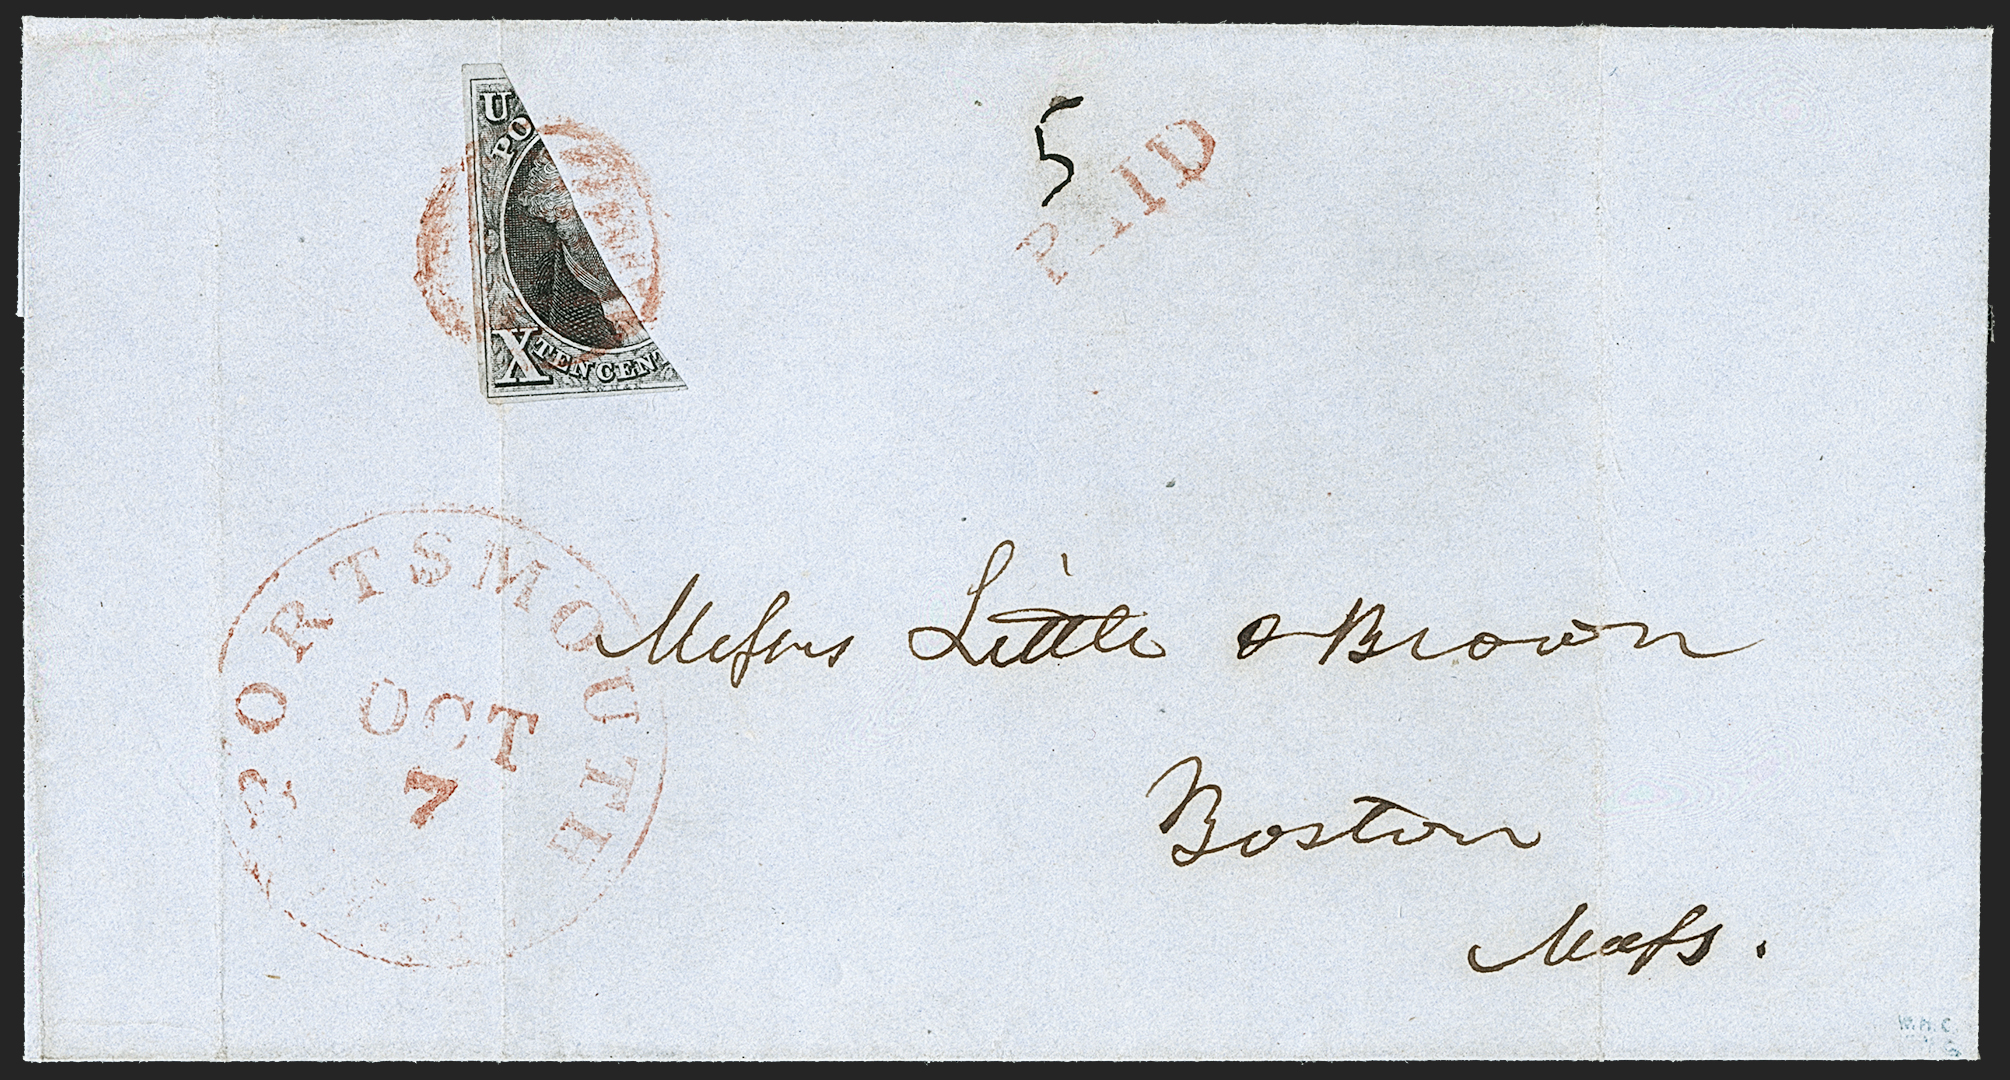 U
PO
X
TEN CEN
5
PAID
PORTSMOUTH
OCT
7
Messrs Little & Brown
Boston
Mass.
W.H.C.